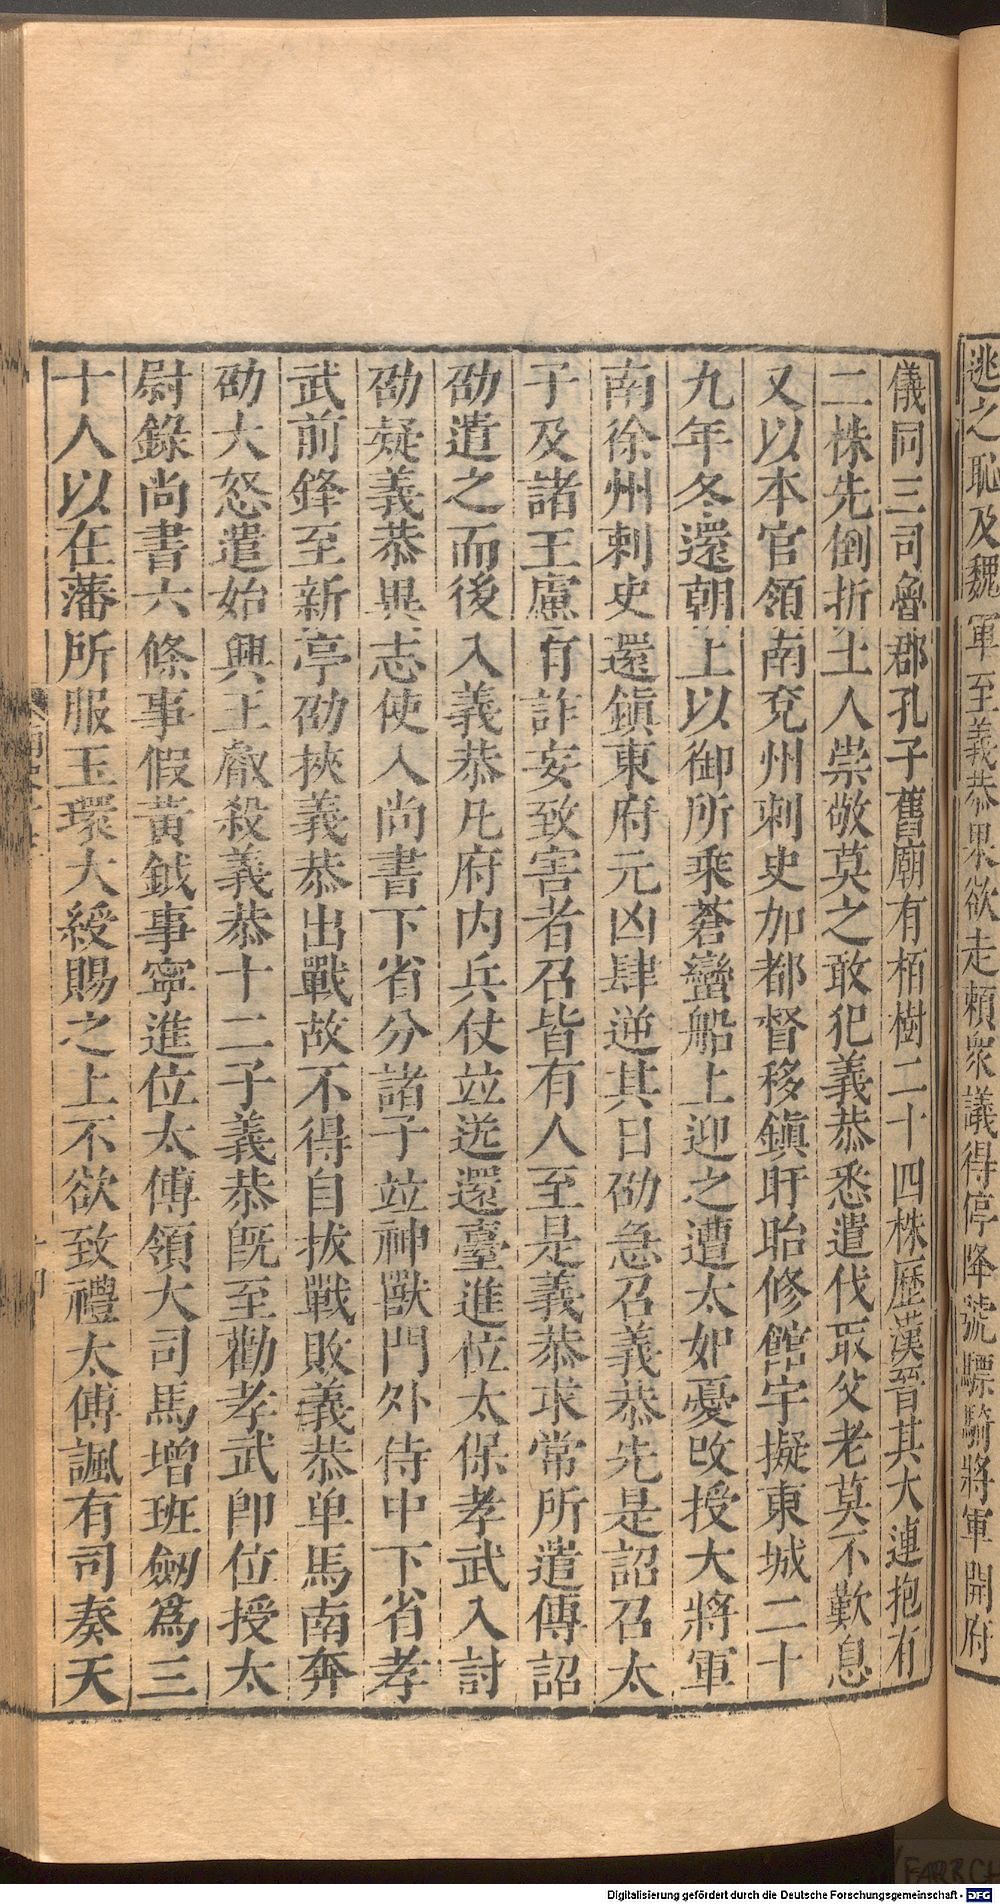 逃之恥及魏軍至義恭果欲走賴衆議得停降號驃騎將軍開府
儀同三司魯郡孔子舊廟有栢樹二十四株歷漢晉其大連抱有
二株先倒折土人崇敬莫之敢犯義恭悉遣伐取父老莫不歎息
又以本官領南兗州刺史加都督移鎭盱眙修館宇擬東城二十
九年冬還朝上以御所乘蒼蠻船上迎之遭太妃憂改授大將軍
南徐州刺史還鎭東府元凶肆逆其日劭急召義恭先是詔召太
子及諸王慮有詐妄致害者召皆有人至是義恭求常所遣傳詔
劭遣之而後入義恭凡府內兵仗竝送還臺進位太保孝武入討
劭疑義恭異志使入尚書下省分諸子竝神獸門外侍中下省孝
武前鋒至新亭劭挾義恭出戰故不得自拔戰敗義恭单馬南奔
劭大怒遣始興王叡殺義恭十二子義恭旣至勸孝武卽位授太
尉錄尚書六條事假黃鉞事寧進位太傅領大司馬增班劒爲三
十人以在藩所服玉環大綬賜之上不欲致禮太傅諷有司奏天
Digitalisierung gefördert durch die Deutsche Forschungsgemeinschaft - DFG